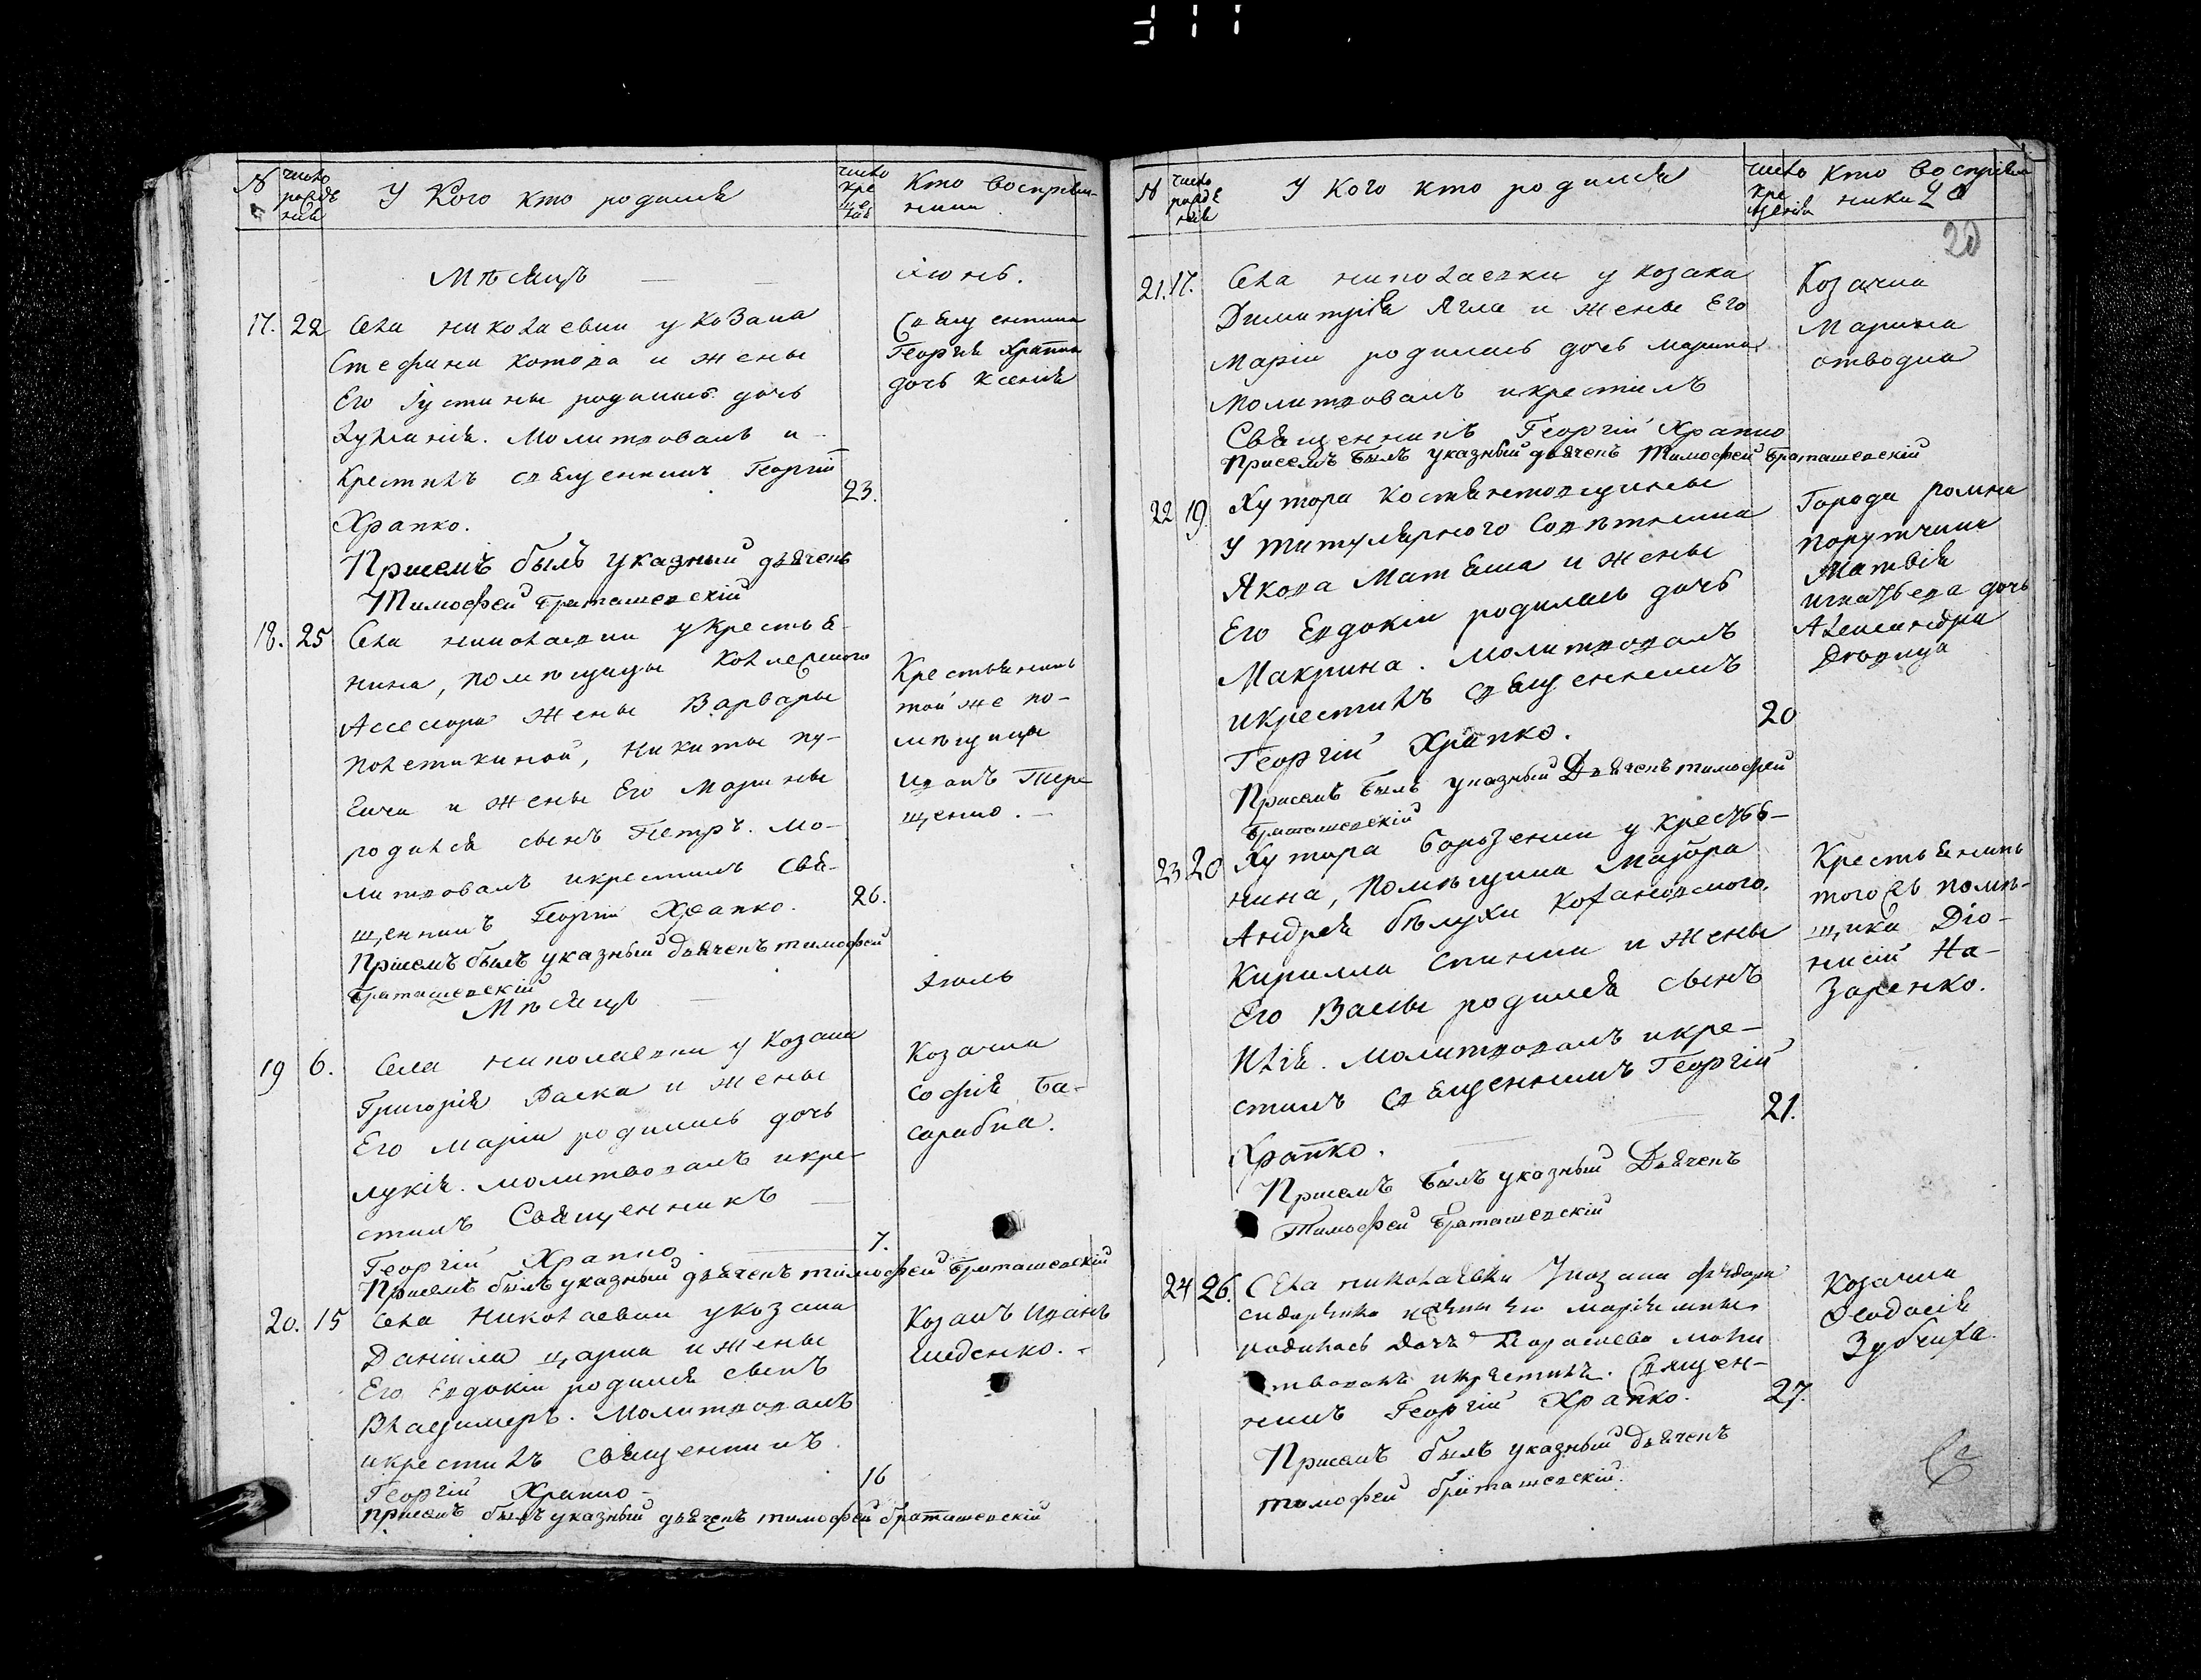 №
число рожде нія
У Кого кто родился
число кре ще нія
Кто воспріем-
ники
Мѣсяцъ
Іюнь.
17. 22 Села николаевки у козака
Стефана Котова и жены
Его Іустины родилась дочь
Лукианія. Молитвовалъ и
Крестилъ священникъ Георгій
23.
Храпко.
Приемъ былъ указный дьячекъ
Тимофей Браташевскій
Священника
Георгія Храпка
дочь Ксенія
18. 25 Села николаевки у крестья-
нина, помѣщицы Коллежского
Ассесора жены Варвары
Полетикиной, Никиты
и жены Его Марины
родился сынъ Петръ. Мо-
литвовалъ и крестилъ Свя-
26.
щенникъ Георгій Храпко.
Приемъ былъ указный дьячекъ тимофей
Браташевскій
Крестьянинъ
той же по-
мѣщицы
Иванъ Тере
щенко.
Мѣсяцъ
Іюль
19 6. Села николаевки у козака
Григорія Васка и жены
Его Маріи родилась дочь
Лукія. молитвовалъ и кре-
стилъ Священникъ
7.
Георгій Храпко
Приемъ былъ указный дьячекъ тимофей Браташевскій
Козачка
Софія Ба-
сарабка.
20. 15 Села Николаевки у козака
Даніила царика и жены
Его Евдокіи родился сынъ
Владимеръ. Молитвовалъ
и крестилъ Священникъ
16
Георгій Храпко
приемъ былъ указный дьячекъ тимофей браташевскій
Козакъ Иванъ
Шеденко.
№
число рожде нія
У кого кто родился
число кре щенія
Кто воспріем
ники
20
20
21. 17. Села николаевки у козака
Димитрія Ягла и жены Его
Маріи родилась дочь марина
Молитвовалъ и крестилъ
Священникъ Георгій Храпко
Приемъ былъ указный дьячекъ Тимофей Браташевскій
Козачка
Марина
отводна
22 19. Хутора Костянтовщины
У титулярного Совѣтника
Якова Матяша и жены
Его Евдокіи родилась дочь
Макрина. Молитвовалъ
и крестилъ священникъ
20
Георгій Храпко.
Приемъ былъ указный Дьячекъ тимофей
Браташевскій
Города ромна
порутчика
Матвія
игнатьева дочь
Александра
23 20 Хутора борозенки у крестья-
нина, помѣщика маіора
Андрея бѣлухи Кохановского,
Кирилла Спинки и жены
Его Вассы родился сынъ
Илія. Молитвовалъ и кре-
стилъ священникъ Георгій
21.
Храпко.
Приемъ былъ указный Дьячекъ
Тимофей Браташевскій
Крестьянинъ
того жъ помѣ-
щика Діо-
нисій На-
заренко.
24 26. Села николаевки У козака федора
сидоренка и жены его марія
родилась дочь Парасцева моли
твовалъ и крестилъ. Священ-
никъ Георгій Храпко.
27.
Приемъ былъ указный дьячекъ
тимофей браташевскій.
Козачка
Феодосія
Зубчиха.